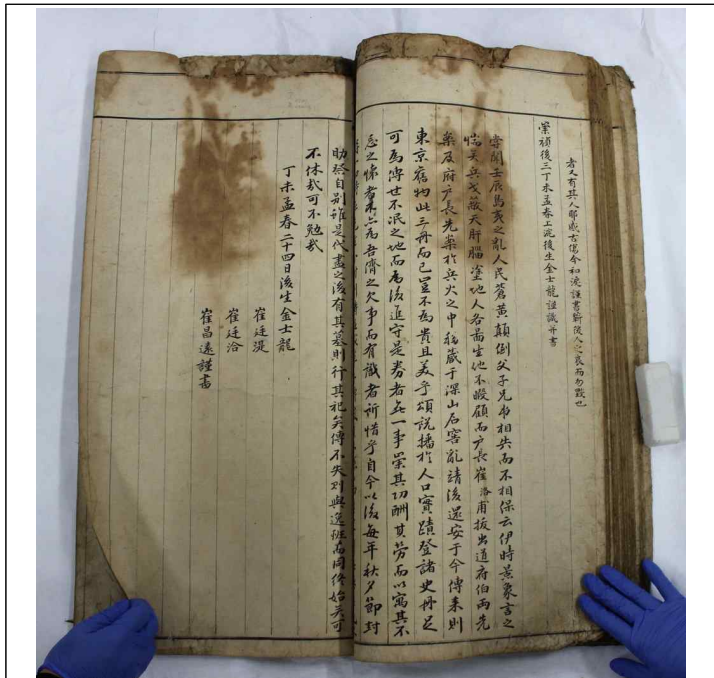 者又有其人耶感古傷今和淚謹書後人之哀而勿毀也
崇禎後三丁未孟春上浣後生金士龍謹識并書
嘗聞壬辰島夷之亂人民蒼黃顛倒父子兄弟相失而不相保云伊時景象言之
惴矣兵戈蔽天肝腦塗地人各啚生他不暇顧而戶長崔洛甫拔出道府伯兩先
案及府戶長先案於兵火之中移藏于深山石窖亂靖後還安于今傳来則
東京舊物此三冊而已豈不為貴且美乎頌說播於人口實蹟登諸史冊足
可為傳世不泯之地而為後進守是券者無一事崇其功酬其勞而以寓其不
忘之者為吾儕之欠事而有識者所惜乎自今以後每年秋夕節封
助祭自別雖是代盡之後有其墓則行其祀矣傳不失則與逸班為同終始矣可
不休哉可不勉哉
丁未孟春二十四日後生金士龍
崔廷湜
崔廷洽
崔昌遠謹書